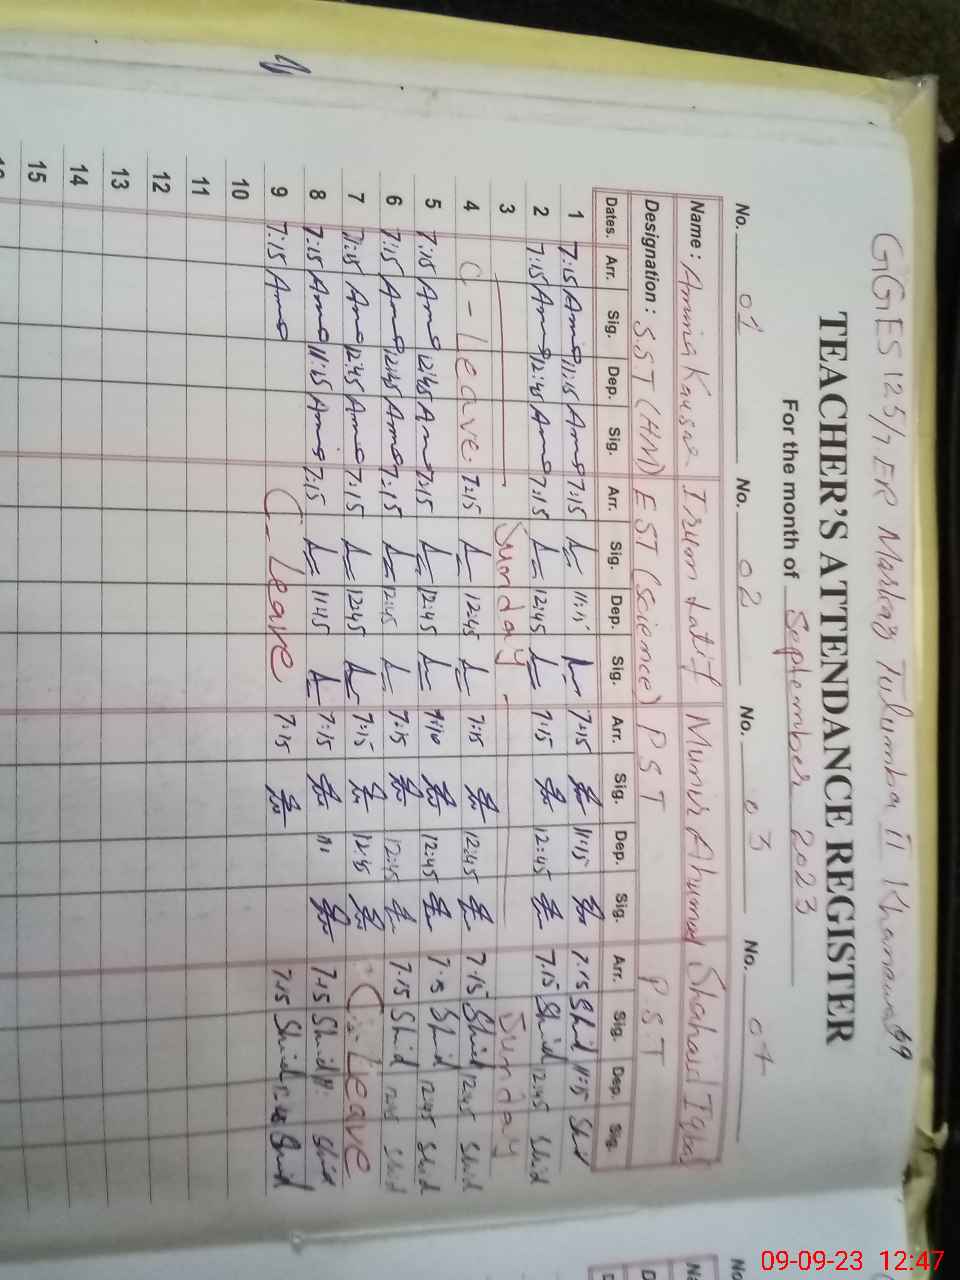 GGES 125/7 ER Markaz Tulumba II Khanewal 59
TEACHER'S ATTENDANCE REGISTER
For the month of September 2023
No. 01 No. 02 No. 03 No. 04
Name: Amina Kausar Irum Latif Munir Ahumad Shahid Iqbal
Designation: S.S.T (HM) EST (Science) P S T P.S.T
Dates. Arr. Sig. Dep. Sig. Arr. Sig. Dep. Sig. Arr. Sig. Dep. Sig. Arr. Sig. Dep. Sig.
1 7:15 Amna 11:15 Amna 7:15 11:15 7:15 11:15 7:15 Shid 11:15 Shid
2 7:15 Amna 12:45 Amna 7:15 12:45 7:15 12:45 7:15 Shid 12:45 Shid
3 Sunday Sunday
4 C-Leave. 7:15 12:45 7:15 12:45 7:15 Shid 12:45 Shid
5 7:15 Amna 12:45 Amna 7:15 12:45 7:10 12:45 7:15 Shid 12:45 Shid
6 7:15 Amna 12:45 Amna 7:15 12:45 7:15 12:45 7:15 Shid 12:45 Shid
7 7:15 Amna 12:45 Amna 7:15 12:45 7:15 12:45 C-Leave
8 7:15 Amna 11:15 Amna 7:15 11:45 7:15 11: 7:15 Shid 11: Shid
9 7:15 Amna C-Leave 7:15 7:15 Shid 12:45 Shid
10
11
12
13
14
15
No
09-09-23 12:47